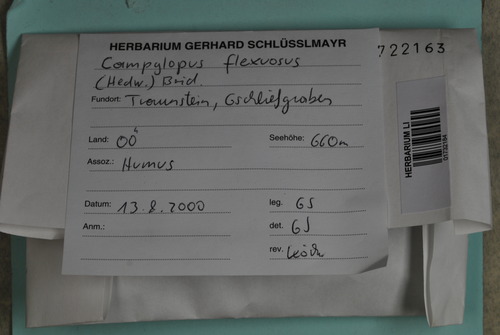 HERBARIUM GERHARD SCHLÜSSLMAYR
722163
Campylopus flexuosus
(Hedw.) Brid.
Fundort: Traunstein, Gschliefgraben
Land: OÖ Seehöhe: 660m
Assoz.: Humus
Datum: 13.8.2000 leg. GS
Anm.: det. GS
rev.
HERBARIUM LI